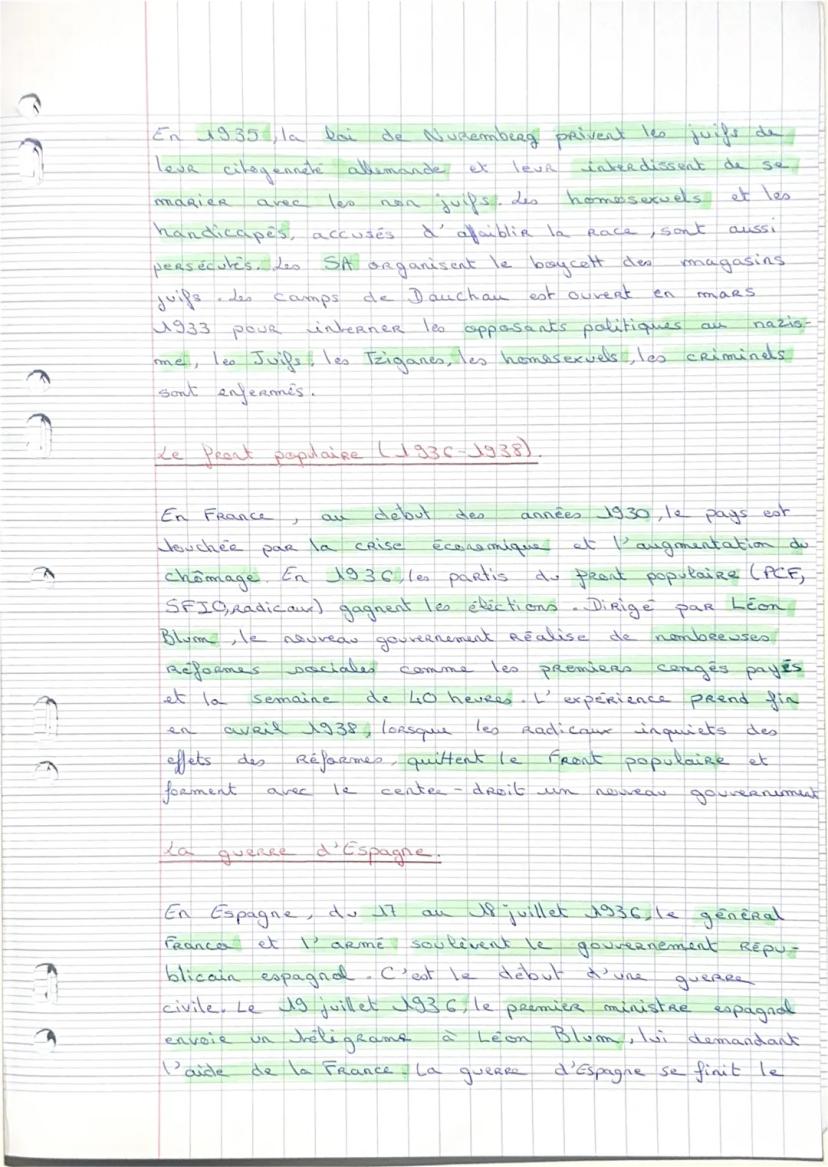 En 1935, la loi de Nuremberg privent les juifs de
leur citoyenneté allemande et leur interdissent de se
marier avec les non juifs. Les homosexuels et les
handicapés, accusés d'affaiblir la race, sont aussi
persécutés. Les SA organisent le boycott des magasins
juifs. Les camps de Dauchau est ouvert en mars
1933 pour interner les opposants politiques au nazis-
me, les Juifs, les Tziganes, les homosexuels, les criminels
sont enfermés.
Le front populaire (1936-1938).
En France, au début des années 1930, le pays est
touchée par la crise économique et l'augmentation du
chômage. En 1936, les partis du front populaire (PCF,
SFIO, radicaux) gagnent les éléctions. Dirigé par Léon
Blum, le nouveau gouvernement réalise de nombreuses
réformes sociales comme les premiers congés payés
et la semaine de 40 heures. L'expérience prend fin
en avril 1938, lorsque les radicaux inquiets des
effets des réformes, quittent le Front populaire et
forment avec le center-droit un nouveau gouvernement
La guerre d'Espagne.
En Espagne, du 17 au 18 juillet 1936, le général
Franco et l'armé soulèvent le gouvernement Répu-
blicain espagnol. C'est le début d'une guerre
civile. Le 19 juillet 1936, le premier ministre espagnol
envoie un téligrame à Léon Blum, lui demandant
l'aide de la France. La guerre d'Espagne se finit le